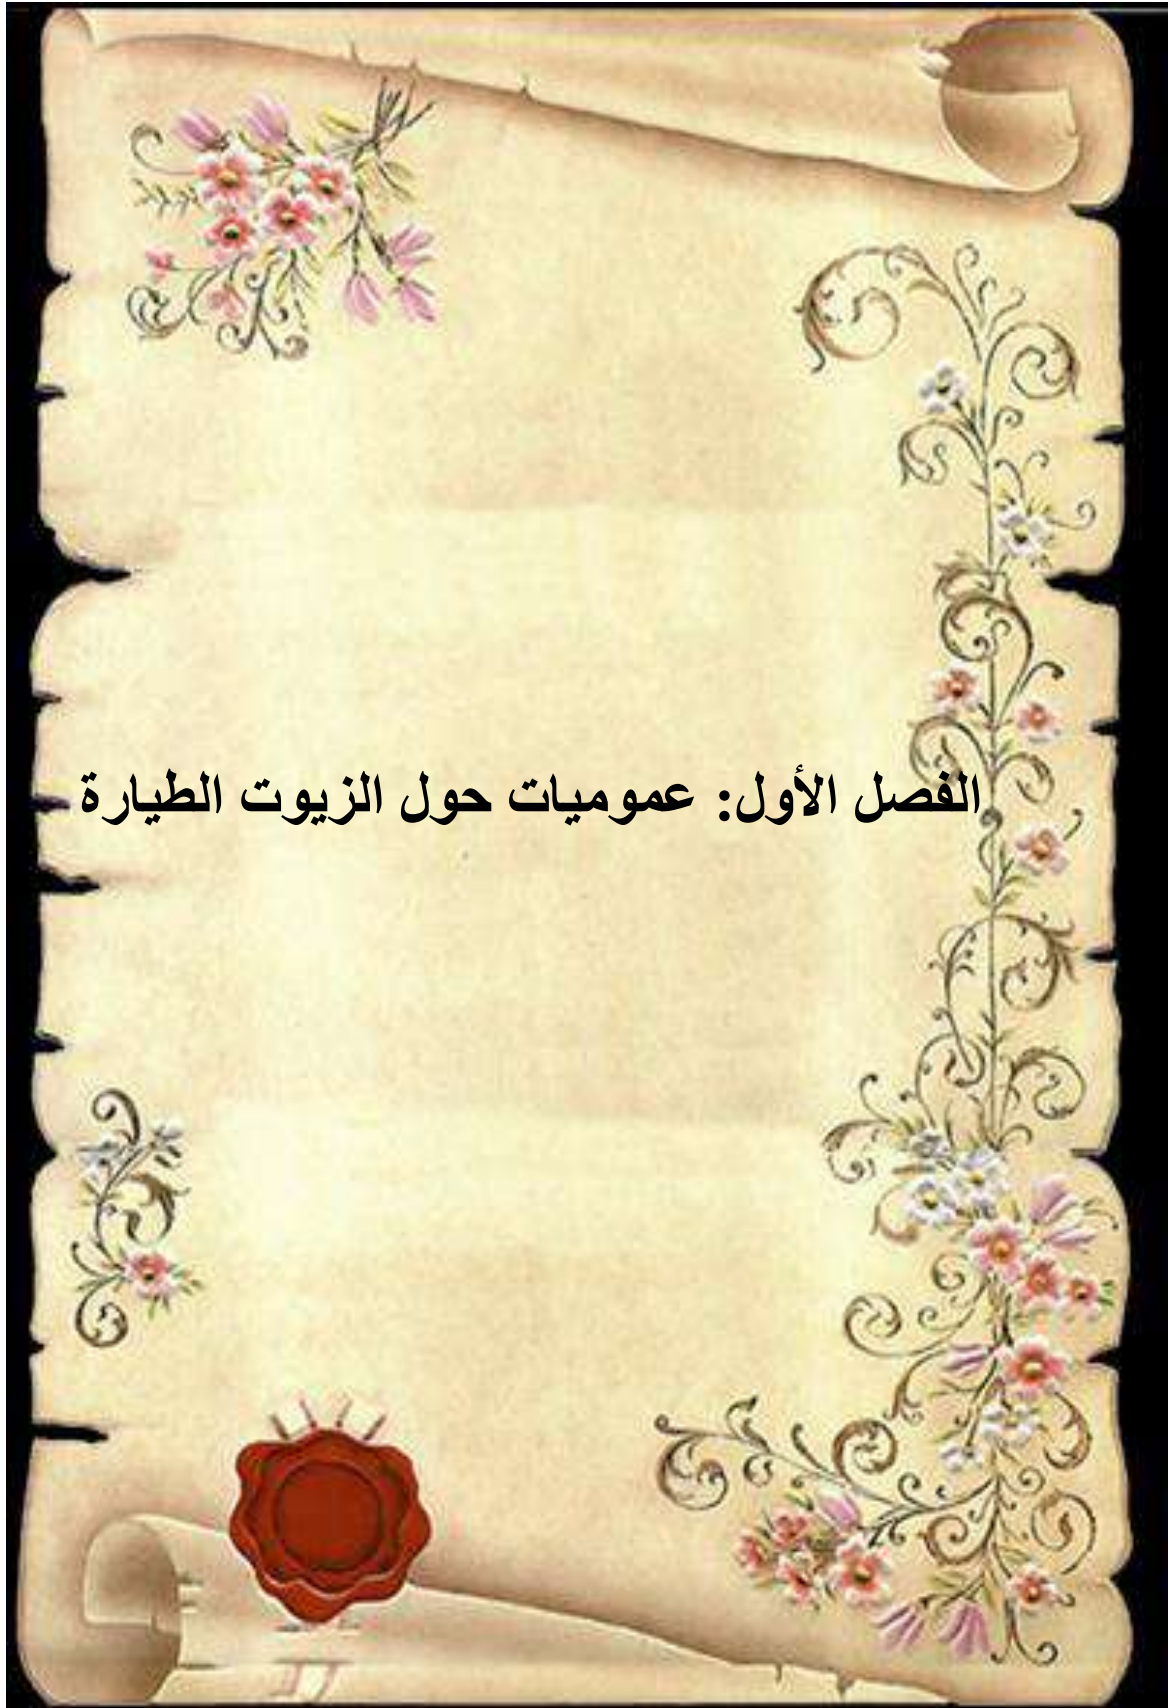 الفصل الأول: عموميات حول الزيوت الطيارة